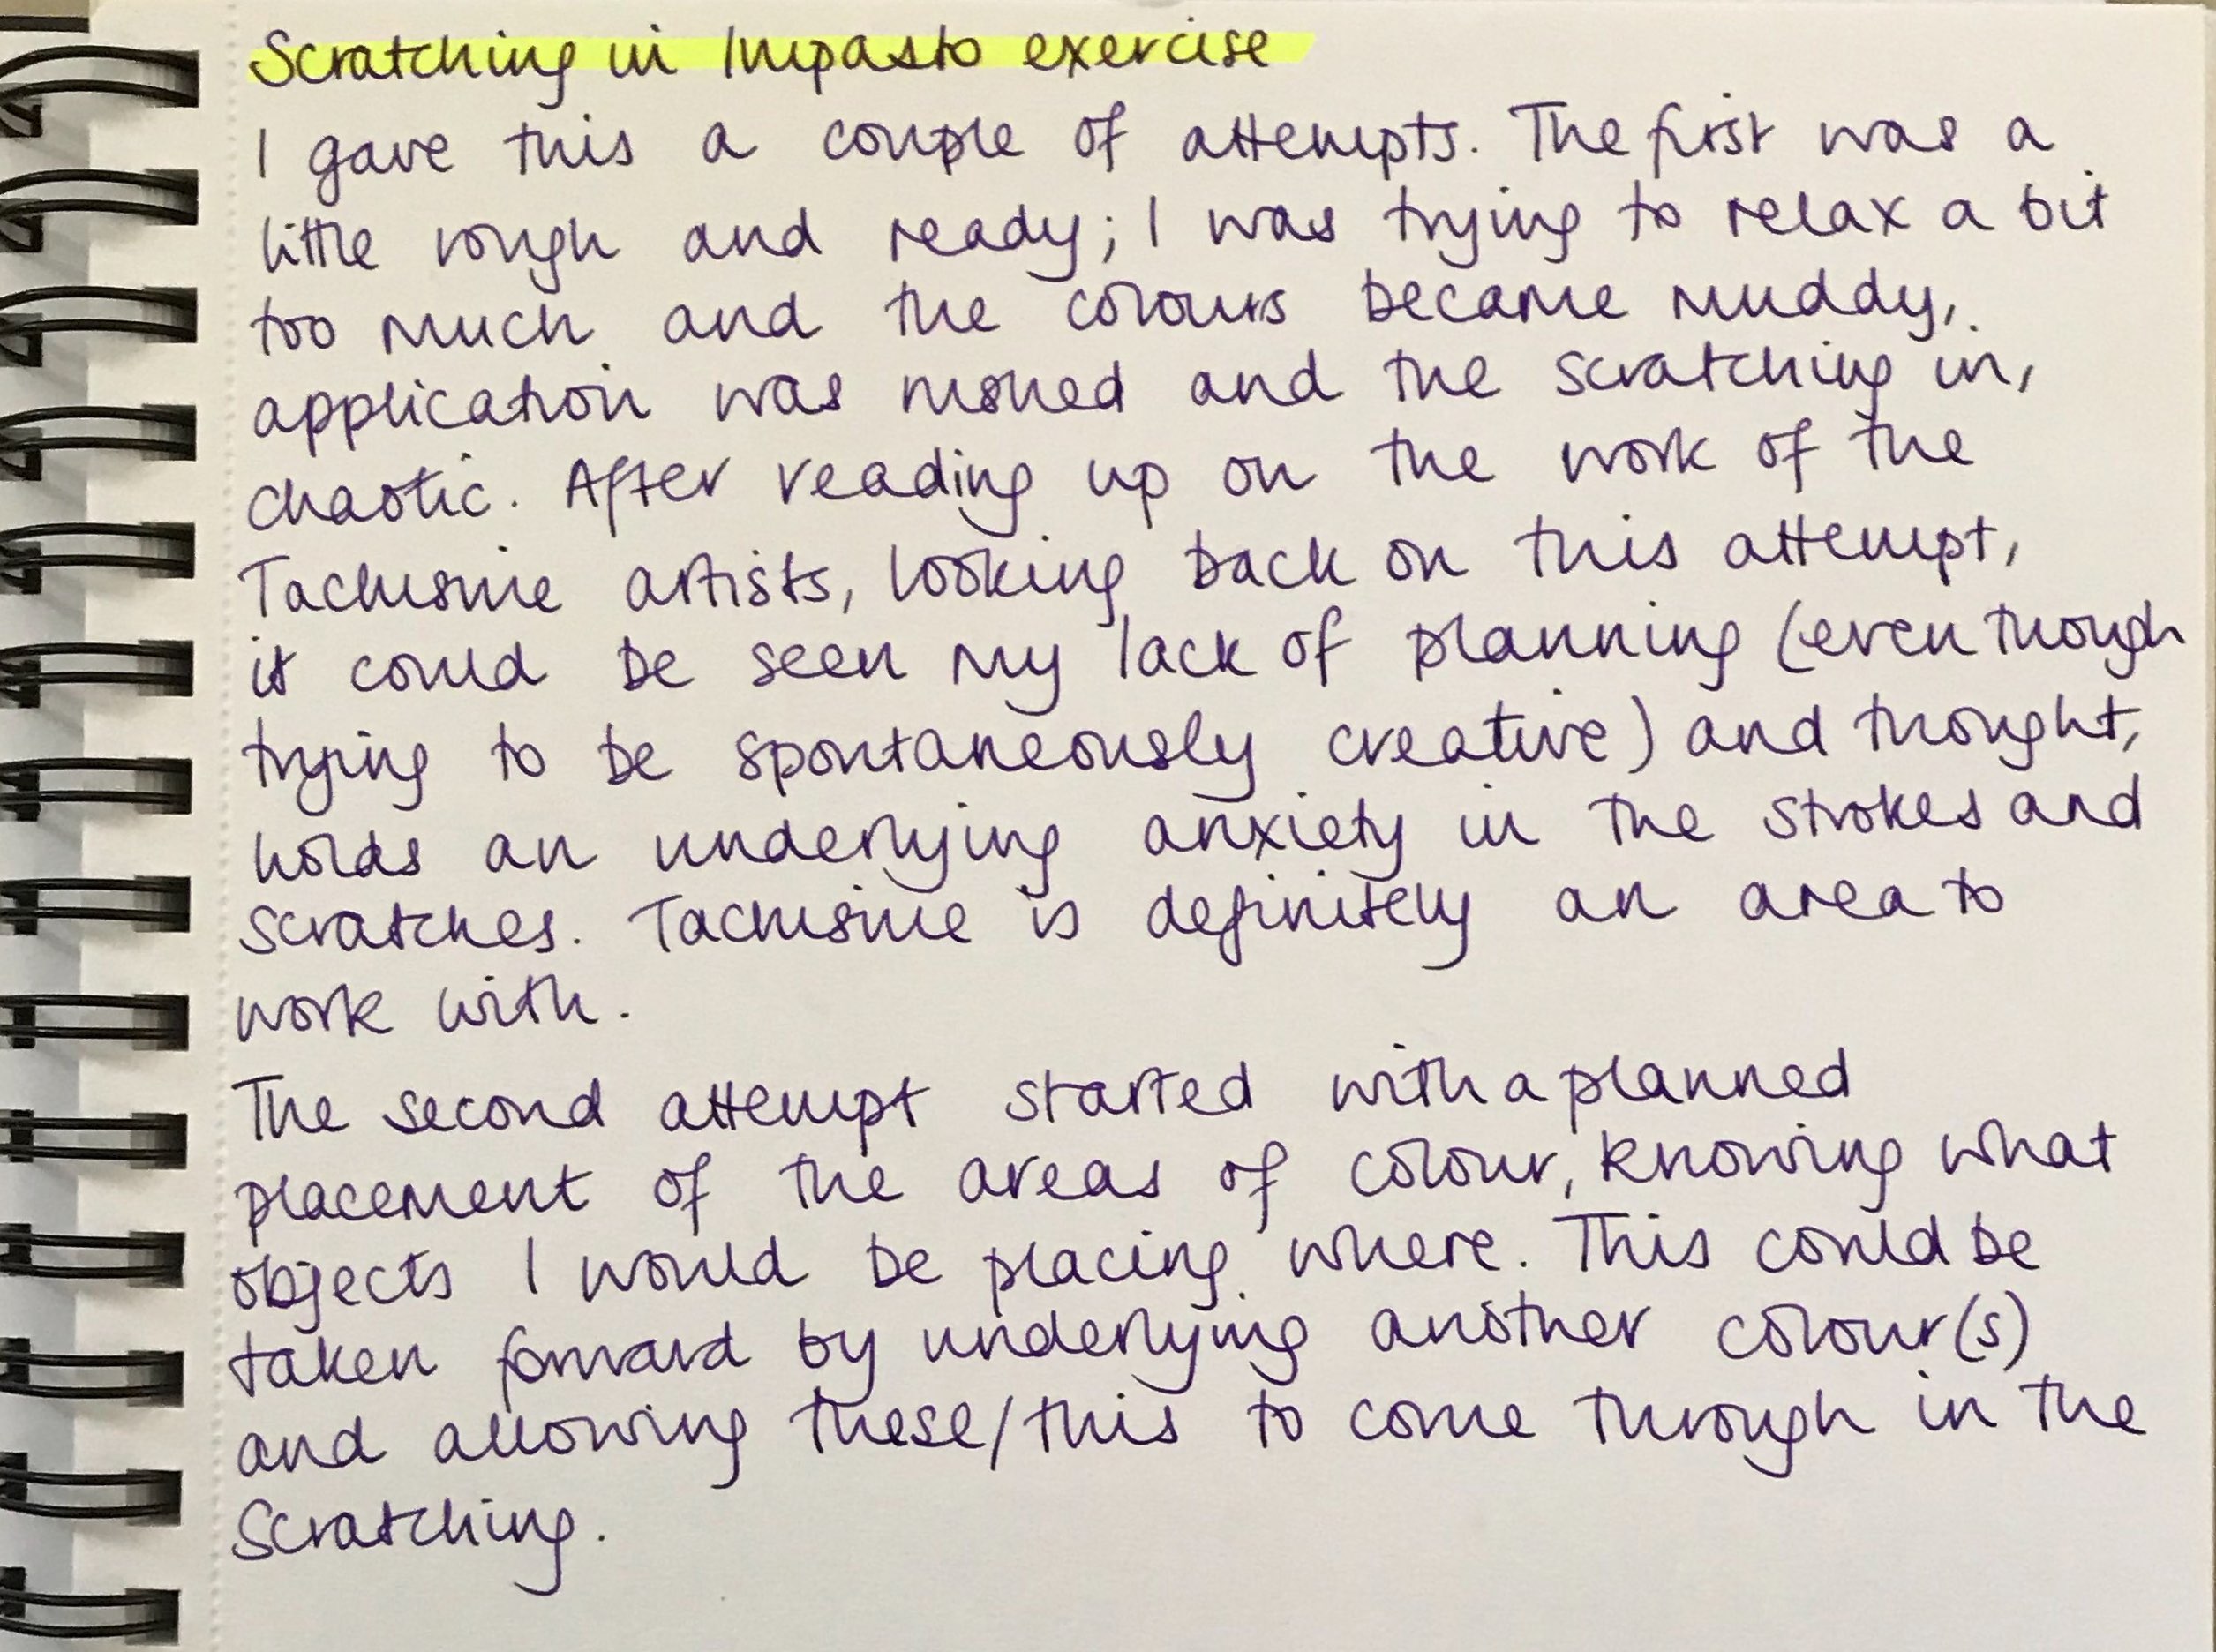 Scratching in Impasto exercise
I gave this a couple of attempts. The first was a
little rough and ready; I was trying to relax a bit
too much and the colours became muddy,
application was rushed and the scratching in,
chaotic. After reading up on the work of the
Tachisme artists, looking back on this attempt,
it could be seen my lack of planning (even though
trying to be spontaneously creative) and thought,
holds an underlying anxiety in the strokes and
scratches. Tachisme is definitely an area to
work with.
The second attempt started with a planned
placement of the areas of colour, knowing what
objects I would be placing where. This could be
taken forward by underlying another colour(s)
and allowing these/this to come through in the
Scratching.